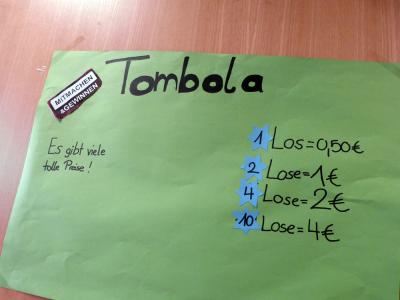 Tombola
MITMACHEN
&GEWINNEN
Es gibt viele
tolle Preise!
1 Los=0,50€
2 Lose=1€
4 Lose=2€
10 Lose=4€